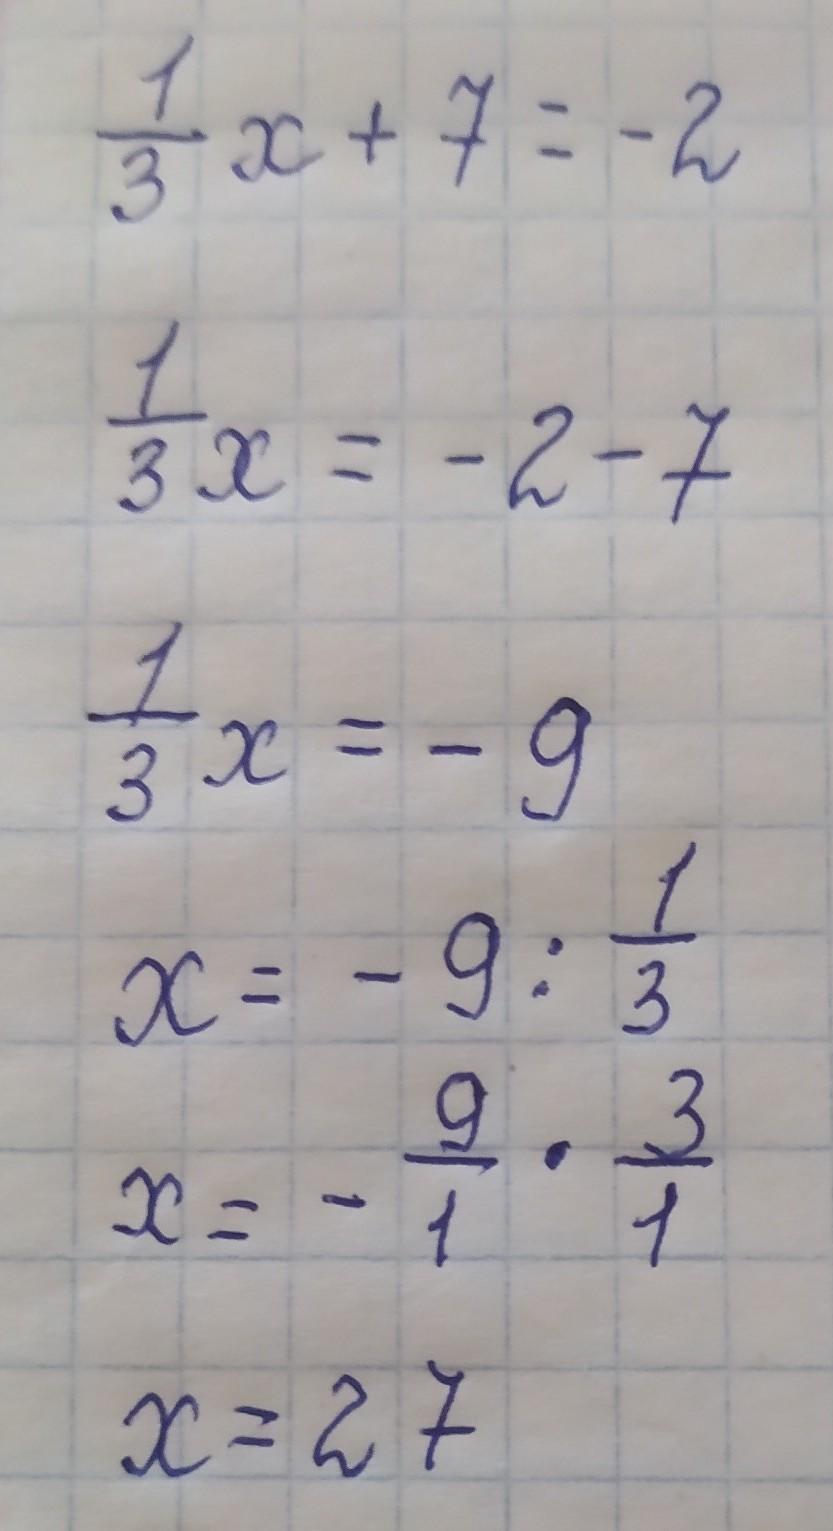 1/3 x + 7 = -2
1/3 x = -2 - 7
1/3 x = - 9
x = - 9 : 1/3
x = - 9/1 · 3/1
x = 27